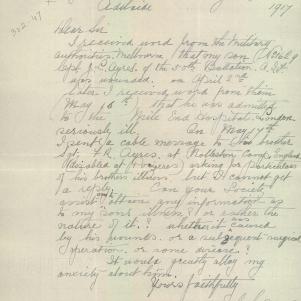 Adelaide
1917
Dear Sir
I received word from the Military
authorities Melbourne that my son
Sgt J. C. Ayres. of the 50th Battalion A.I.F.
was wounded on April 2nd
Later I received word from them
May 15th that he was admitted
to the Mile End Hospital. London
seriously ill. On May 17th
I sent a cable message to his brother
Sgt. F.R. Ayres. at Camp. England
asking for particulars
of his brothers illness, but I cannot get
a reply. Can your Society
assist and give information as
to my sons illness & or rather the
nature of it.! whether it was caused
by his wounds. or a subsequent surgical
operation. or some disease!!
It would greatly allay my
anxiety about him.
Yours faithfully